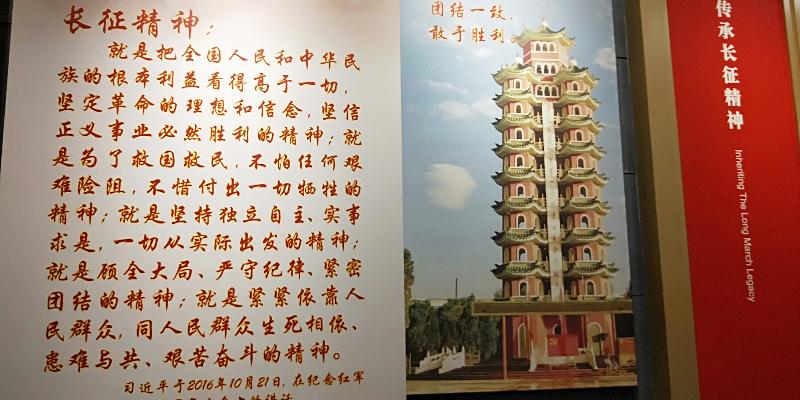 长征精神；
就是把全国人民和中华民
族的根本利益看得高于一切，
坚定革命的理想和信念，坚信
正义事业必然胜利的精神；就
是为了救国救民，不怕任何艰
难险阻，不惜付出一切牺牲的
精神；就是坚持独立自主、实事
求是，一切从实际出发的精神；
就是顾全大局、严守纪律、紧密
团结的精神；就是紧紧依靠人
民群众，同人民群众生死相依、
患难与共、艰苦奋斗的精神。
习近平于2016年10月21日，在纪念红军
团结一致，
敢于胜利。
传承长征精神
Inheriting The Long March Legacy